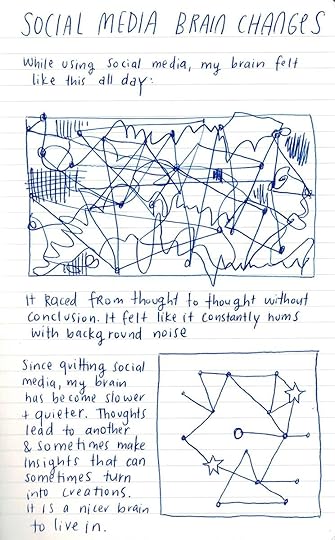 SOCIAL MEDIA BRAIN CHANGES
While using social media, my brain felt
like this all day:
It raced from thought to thought without
conclusion. It felt like it constantly hums
with background noise
Since quitting social
media, my brain
has become slower
+ quieter. Thoughts
lead to another
& sometimes make
insights that can
sometimes turn
into creations.
It is a nicer brain
to live in.